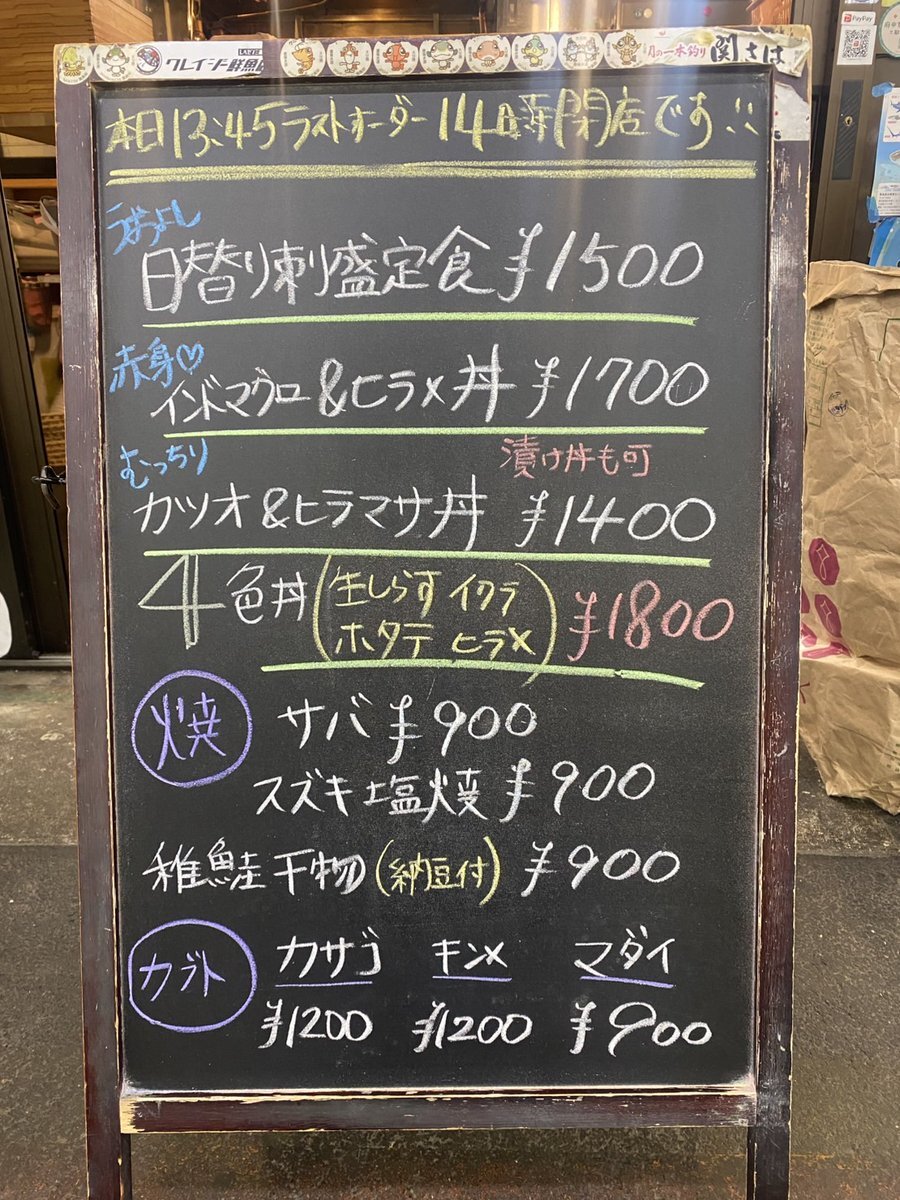 クレイジー鮮魚店
の一本釣り 関さば
PayPay
本日13:45ラストオーダー 14時閉店です!!
うまよし
日替り刺盛定食 ¥1500
赤身♡
インドマグロ&ヒラメ丼 ¥1700
むっちり
漬け丼も可
カツオ&ヒラマサ丼 ¥1400
4色丼(生しらす イクラ
ホタテ ヒラメ) ¥1800
焼 サバ ¥900
スズキ塩焼 ¥900
稚鮭干物(納豆付) ¥900
カブト カサゴ キンメ マダイ
¥1200 ¥1200 ¥900